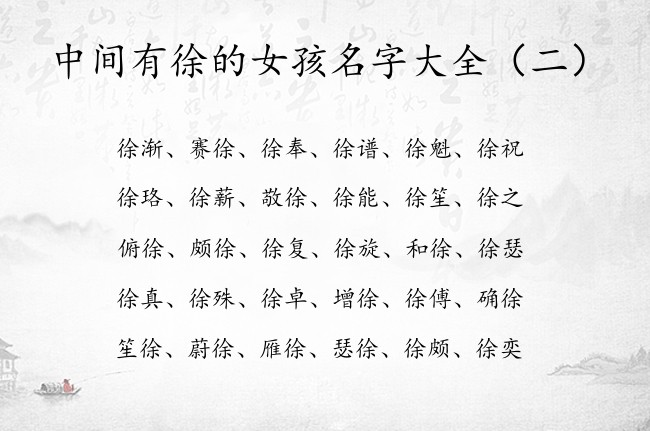 中间有徐的女孩名字大全（二）
徐渐、赛徐、徐奉、徐谱、徐魁、徐祝
徐珞、徐薪、敬徐、徐能、徐笙、徐之
俯徐、颇徐、徐复、徐旋、和徐、徐瑟
徐真、徐殊、徐卓、增徐、徐傅、确徐
笙徐、蔚徐、雁徐、瑟徐、徐颇、徐奕